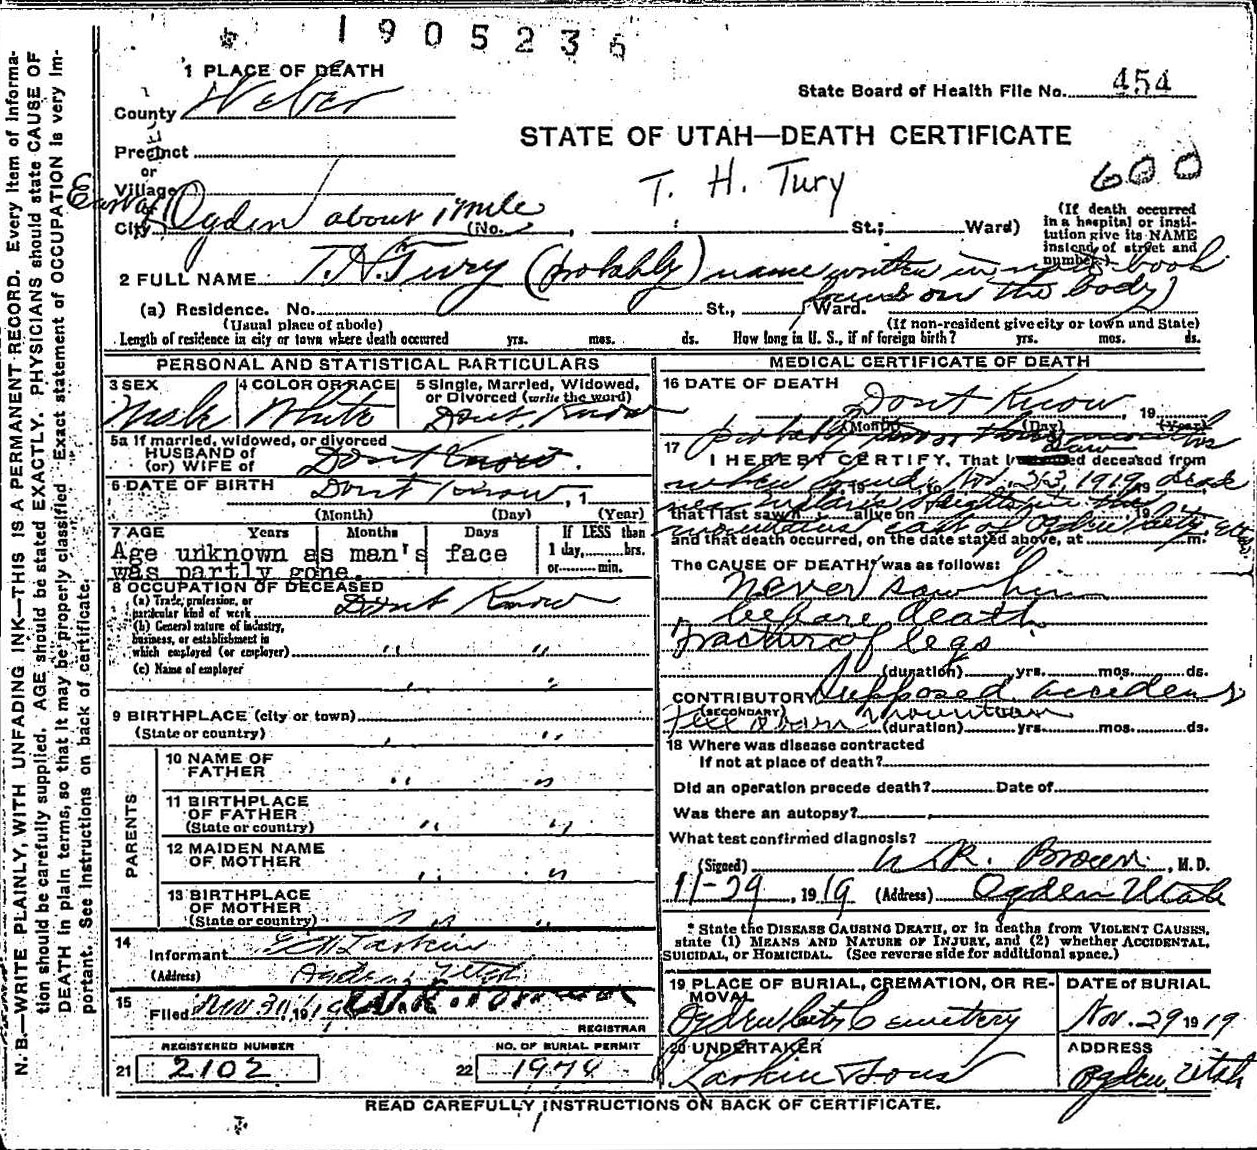 1905236
1 PLACE OF DEATH
County Weber
State Board of Health File No. 454
STATE OF UTAH—DEATH CERTIFICATE
Precinct
or
Village
T. H. Tury
600
East of
or
City Ogden about 1 mile (No. St.; Ward)
(If death occurred
in a hospital or insti-
tution give its NAME
instead of street and
number.)
2 FULL NAME T. H. Tury (probably) name written in note book
found on the body)
(a) Residence. No. St., Ward.
(Usual place of abode) (If non-resident give city or town and State)
Length of residence in city or town where death occurred yrs. mos. ds. How long in U. S., if of foreign birth? yrs. mos. ds.
PERSONAL AND STATISTICAL PARTICULARS
3 SEX
Male
4 COLOR OR RACE
White
5 Single, Married, Widowed,
or Divorced (write the word)
Dont Know
5a If married, widowed, or divorced
HUSBAND of
(or) WIFE of Dont Know.
6 DATE OF BIRTH Dont Know, 1
(Month) (Day) (Year)
7 AGE Years Months Days If LESS than
1 day, hrs.
or min.
Age unknown as man's face
was partly gone.
8 OCCUPATION OF DECEASED
(a) Trade, profession, or
particular kind of work Dont Know
(b) General nature of industry,
business, or establishment in
which employed (or employer) " "
(c) Name of employer
" "
9 BIRTHPLACE (city or town)
(State or country) " "
PARENTS
10 NAME OF
FATHER " "
11 BIRTHPLACE
OF FATHER
(State or country) " "
12 MAIDEN NAME
OF MOTHER " "
13 BIRTHPLACE
OF MOTHER
(State or country) " " "
14
Informant Larkin
(Address) Ogden, Utah
15
Filed Nov 30, 19
REGISTRAR
REGISTERED NUMBER
21 2102
NO. OF BURIAL PERMIT
22 1974
MEDICAL CERTIFICATE OF DEATH
16 DATE OF DEATH
Dont Know, 19
(Month) (Day) (Year)
probably two or three months
17 saw
I HEREBY CERTIFY, That I deceased from
when found, 19 to Nov. 23, 1919, 19 dead
that I last saw h alive on 19
mountains east of Ogden City, Utah
and that death occurred, on the date stated above, at m.
The CAUSE OF DEATH* was as follows:
never saw him
before death
Fracture of legs
(duration) yrs. mos. ds.
CONTRIBUTORY Supposed accident
(SECONDARY)
fell down mountain (duration) yrs. mos. ds.
18 Where was disease contracted
If not at place of death?
Did an operation precede death? Date of
Was there an autopsy?
What test confirmed diagnosis?
(Signed) R. Brown, M. D.
11-29, 1919 (Address) Ogden Utah
* State the DISEASE CAUSING DEATH, or in deaths from VIOLENT CAUSES,
state (1) MEANS AND NATURE OF INJURY, and (2) whether ACCIDENTAL,
SUICIDAL, or HOMICIDAL. (See reverse side for additional space.)
19 PLACE OF BURIAL, CREMATION, OR RE-
MOVAL
Ogden City Cemetery
DATE of BURIAL
Nov. 29 1919
20 UNDERTAKER
Larkin & Sons
ADDRESS
Ogden, Utah
READ CAREFULLY INSTRUCTIONS ON BACK OF CERTIFICATE.
N. B.—WRITE PLAINLY, WITH UNFADING INK—THIS IS A PERMANENT RECORD. Every item of informa-
tion should be carefully supplied. AGE should be stated EXACTLY. PHYSICIANS should state CAUSE OF
DEATH in plain terms, so that it may be properly classified. Exact statement of OCCUPATION is very im-
portant. See instructions on back of certificate.